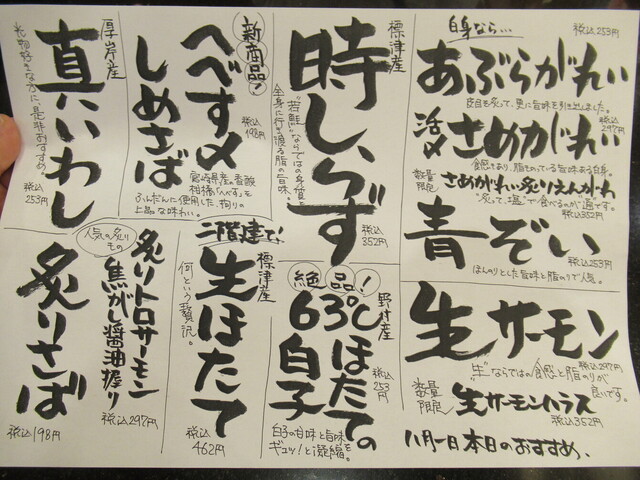 白身なら…
税込253円
あぶらがれい
皮目を炙って、更に旨味を引き出しました。
税込297円
活〆さめがれい
食感もあり、脂ものっている旨味ある白身。
数量限定
さめがれい炙りえんがわ
"炙って、塩"で食べるのが通です。
税込352円
青ぞい
税込253円
ほんのりとした旨味と脂のりで人気。
生サーモン
税込297円
"生"ならではの食感と脂のりが良いです。
数量限定
"生"サーモンハラス
税込352円
八月一日本日のおすすめ、
標津産
時しらず
"若鮭"ならではの身質を
全身に行き渡る脂の旨味。
税込352円
新商品!
へべす〆
しめさば
税込198円
宮崎県産の香酸
柑橘「へべす」を
ふんだんに使用した、拘りの
上品な味わい。
厚岸産
真いわし
光物好きな方に、是非おすすめ。
税込253円
絶品!
野村産
63℃ほたての白子
税込253円
白子の甘味と旨味を
ギュッ!と凝縮。
二階建て!
標津産
生ほたて
何という贅沢。
税込462円
人気の炙りもの
炙りトロサーモン
焦がし醤油握り
税込297円
炙りさば
税込198円